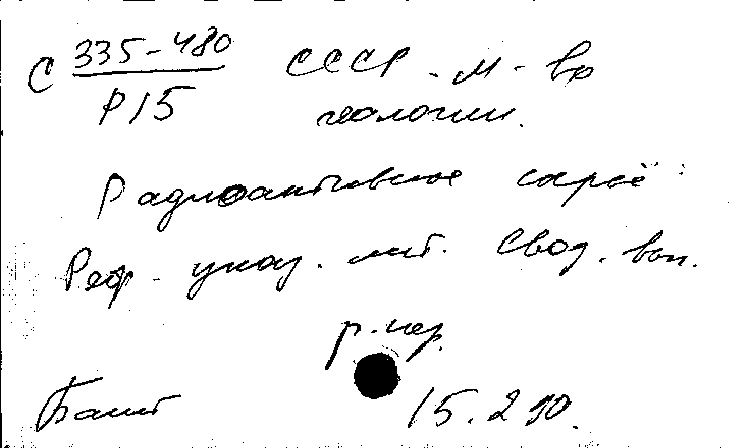 С 335-480 СССР. М-во
Р15 геологии.
Радиоактивное сырьё:
Реф. указ. лит. Свод. вып.
р. пер.
15.2 90.